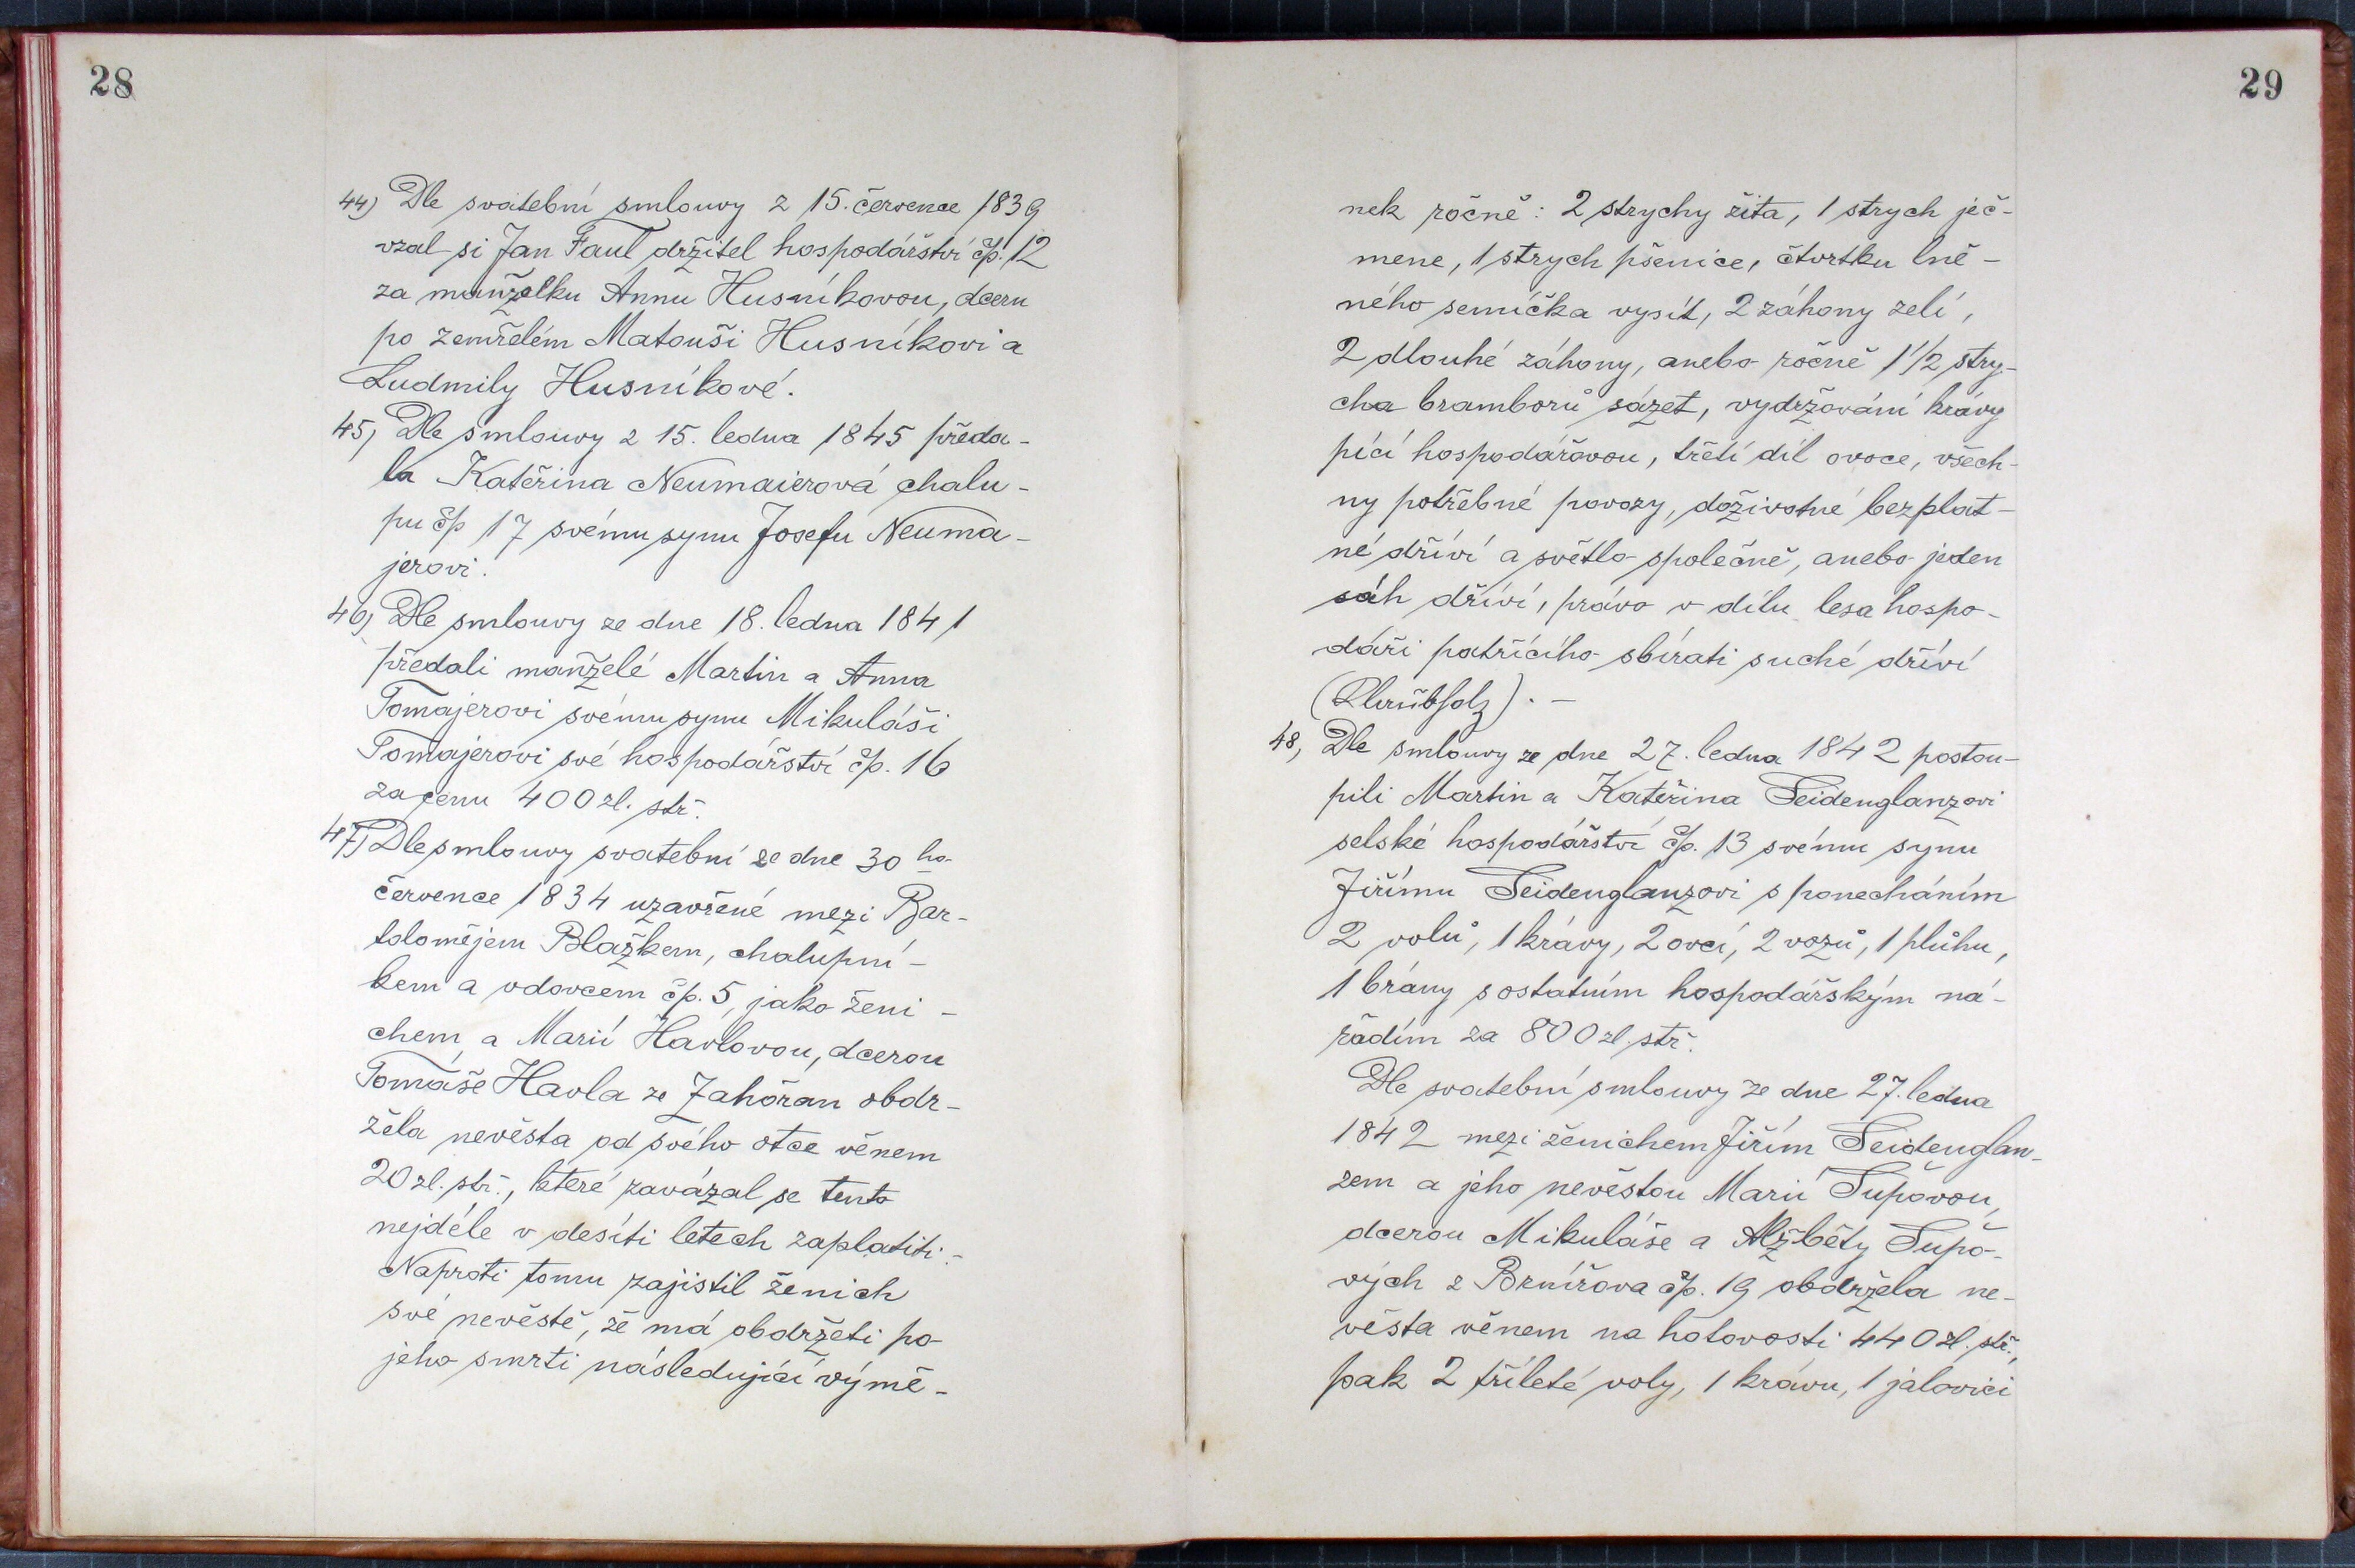 28
44) Dle svatební smlouvy z 15. července 1839
vzal si Jan Faul držitel hospodářství čp. 12
za manželku Annu Husníkovou, dceru
po zemřelém Matouši Husníkovi a
Ludmily Husníkové.
45) Dle smlouvy z 15. ledna 1845 předa-
la Kateřina Neumaierová chalu-
pu čp 17 svému synu Josefu Neuma-
jerovi.
46) Dle smlouvy ze dne 18. ledna 1841
předali manželé Martin a Anna
Tomajerovi svému synu Mikuláši
Tomajerovi své hospodářství čp. 16
za cenu 400 zl. stř.
47) Dle smlouvy svatební ze dne 30 ho
července 1834 uzavřené mezi Bar-
tolomějem Blažkem, chalupní-
kem a vdovcem čp. 5, jako ženi-
chem a Marií Havlovou, dcerou
Tomáše Havla ze Zahořan obdr-
žela nevěsta od svého otce věnem
20 zl. stř., které zavázal se tento
nejdéle v desíti letech zaplatiti.-
Naproti tomu zajistil ženich
své nevěstě, že má obdržeti po
jeho smrti následující výmě-
29
nek ročně: 2 strychy žita, 1 strych ječ-
mene, 1 strych pšenice, čtvrtku lně-
ného semíčka vysít, 2 záhony zelí,
2 dlouhé záhony, anebo ročně 1 1/2 stry-
cha bramborů sázet, vydržování krávy
pící hospodářovou, třetí díl ovoce, všech-
ny potřebné povozy, doživotné bezplat-
né dříví a světlo společně, anebo jeden
sáh dříví, právo v dílu lesa hospo-
dáři patřícího sbírati suché dříví
48) Dle smlouvy ze dne 27. ledna 1842 postou-
pili Martin a Kateřina Seidenglanzovi
selské hospodářství čp. 13 svému synu
Jiřímu Seidenglanzovi s ponecháním
2 volů, 1 krávy, 2 ovcí, 2 vozů, 1 pluhu,
1 brány s ostatním hospodářským ná-
řadím za 800 zl. stř.
Dle svatební smlouvy ze dne 27. ledna
1842 mezi ženichem Jiřím Seidenglan-
zem a jeho nevěstou Marií Šupovou,
dcerou Mikuláše a Alžběty Šupo-
vých z Brnířova čp. 19 obdržela ne-
věsta věnem na hotovosti 440 zl. stř.,
pak 2 tříleté voly, 1 krávu, 1 jalovici